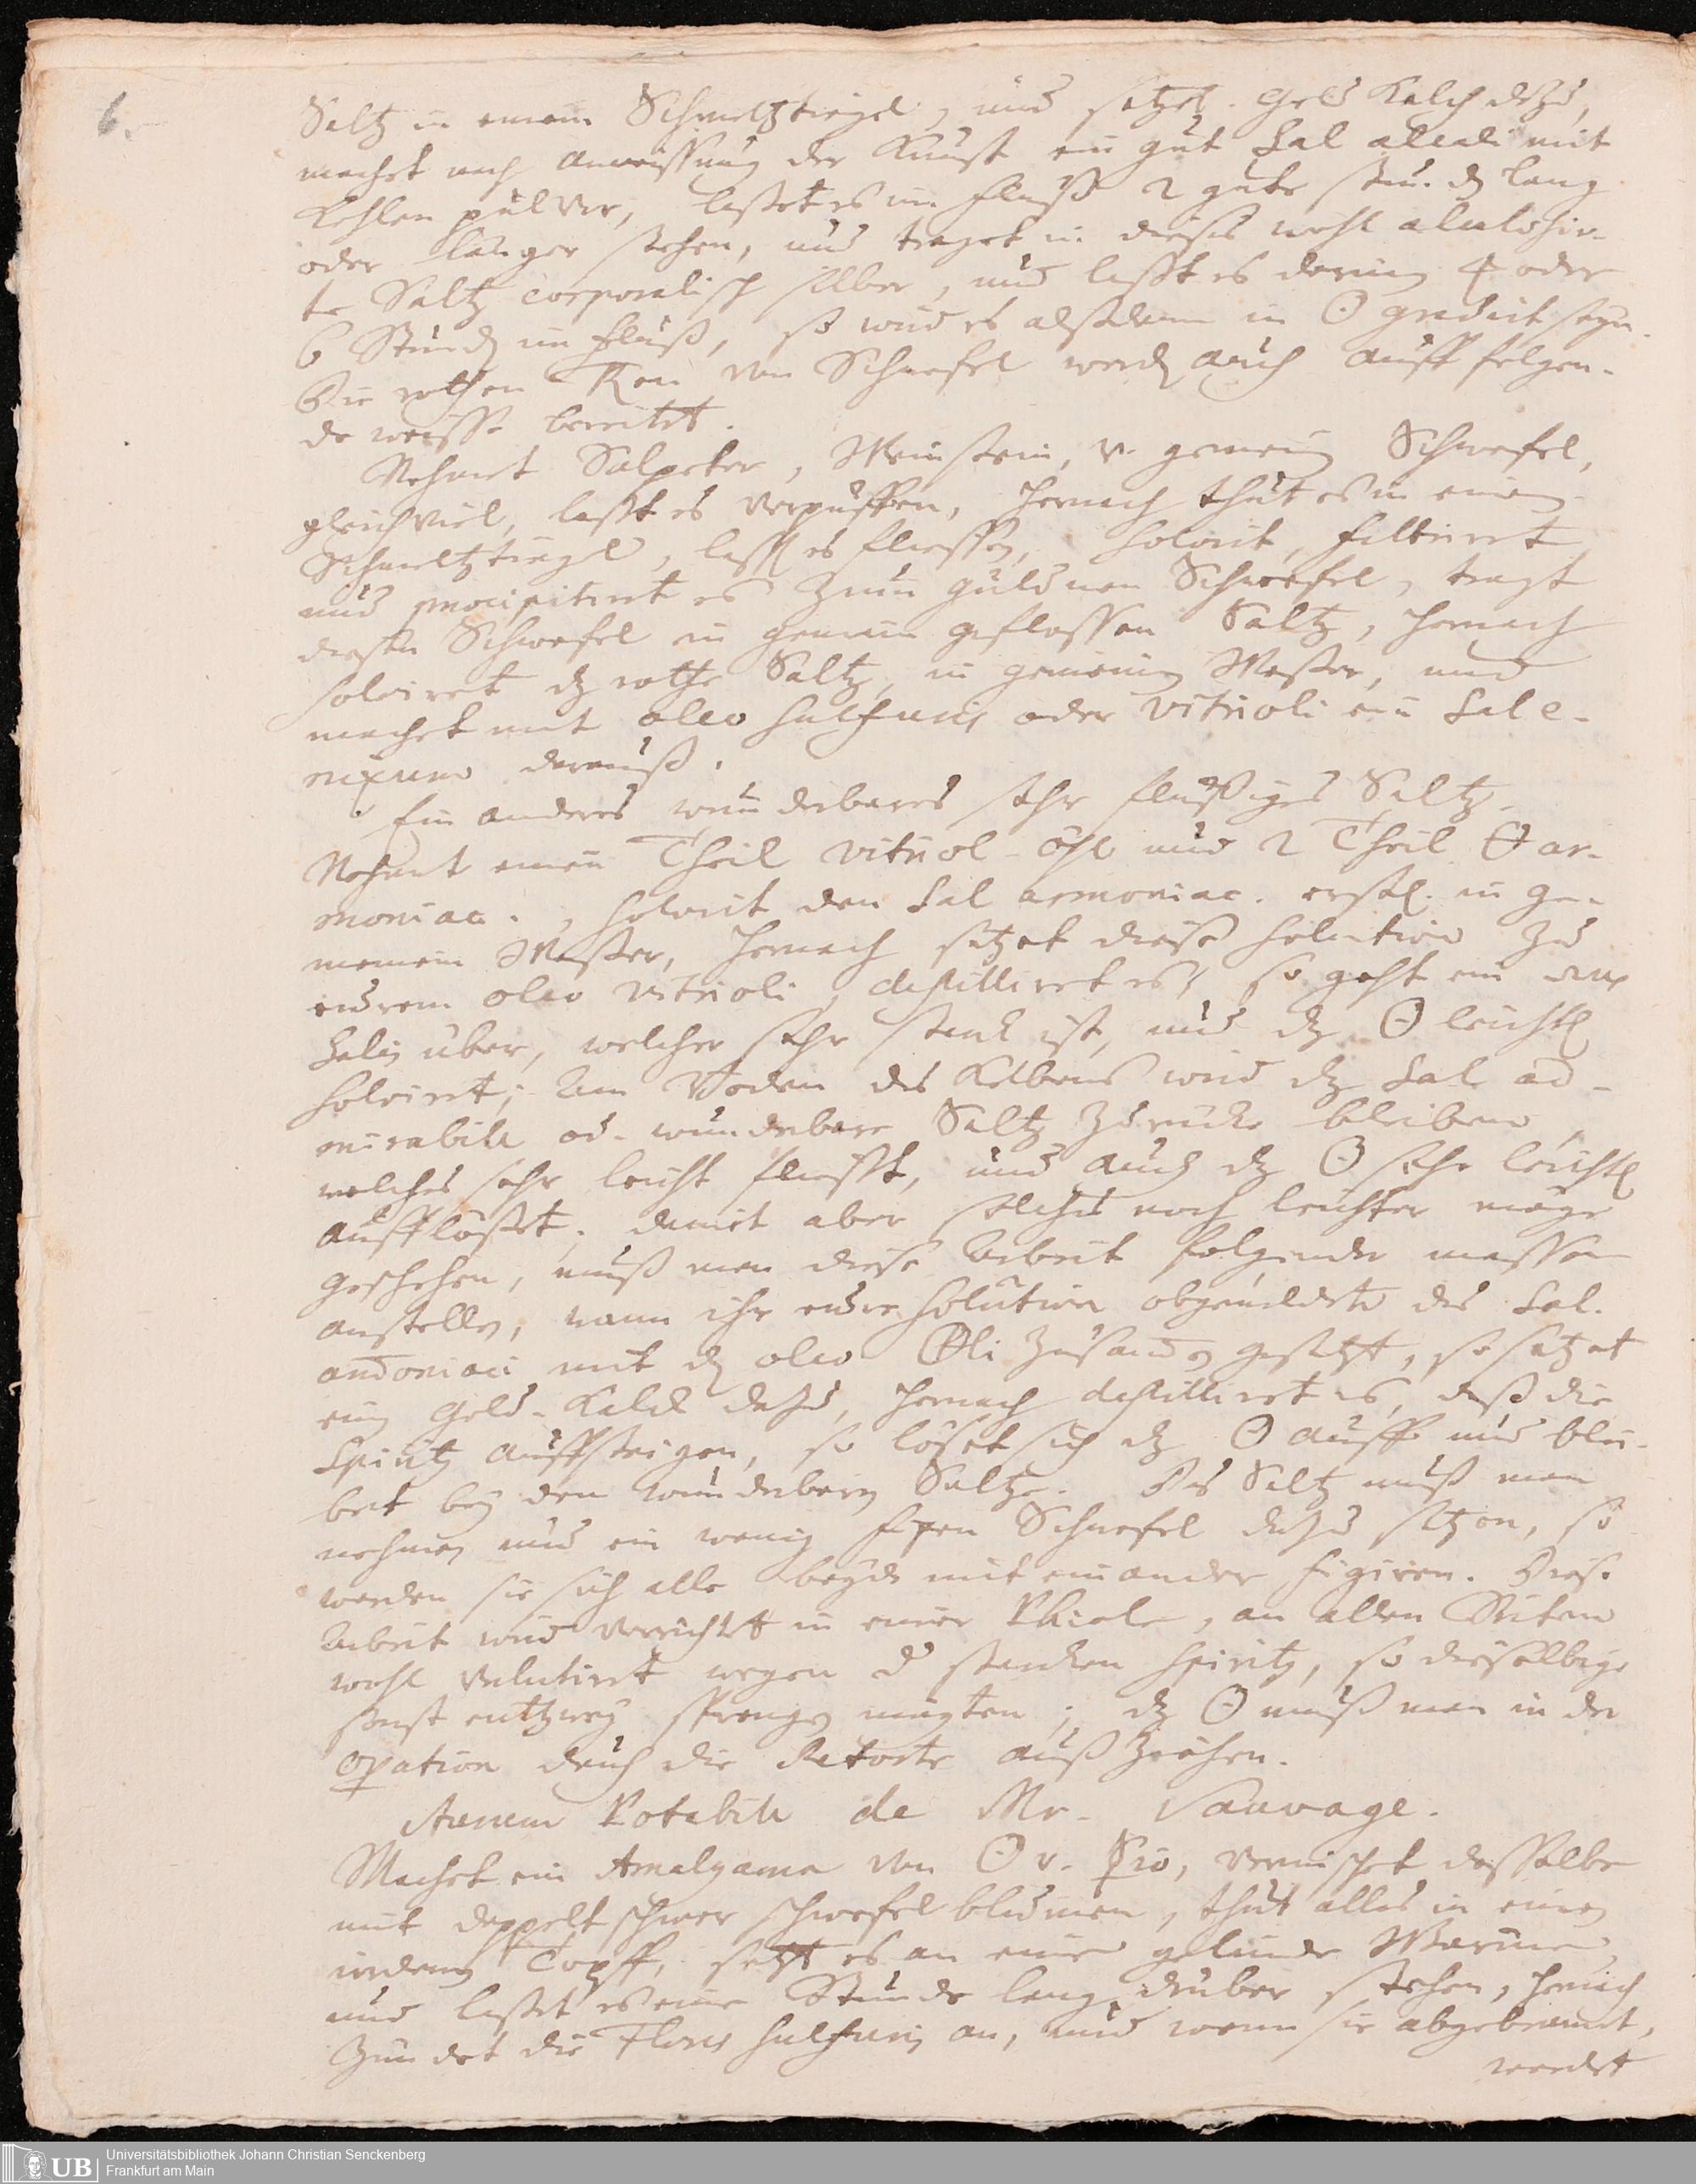 6.
Saltz in einem Schmeltztiegel, und setzet Gold Kalch dazu,
machet nach anweissung der Kunst ein gut Sal alcali mit
Kohlen pulver, lasset es im Fluß 2 gute stund lang
oder länger stehen, und traget in dieses wohl
te Saltz corporalisch silber, und lasst es darinn 4 oder
6 Stund im Fluß, so wird es alßdann in ☉ gradirt seyn.
Die rothen von Schwefel werd auch auff folgen-
de weisse bereitet.
Nehmt Salpeter, Weinstein, v. gemein Schwefel,
gleichviel, lasst es verpuffen, hernach thut es in einen
Schmeltztiegel, lasst es fliessen, solvirt, filtriret
und praecipitiret es zum güldnen Schwefel, tragt
diesen Schwefel in gemein geflossen Saltz, hernach
solviret dz rothe Saltz, in gemeinen Wasser, und
machet mit oleo sulfuris oder vitrioli ein Sal e-
nixum darauß.
Ein anderes wunderbares sehr flüßiges Saltz.
Nehmt einen Theil vitriol-öhl und 2 Theil ar-
moniac., solvirt den Sal armoniac. erstl. in ge-
meinem Wasser, hernach setzet diese solution zu
eurem oleo vitrioli, destilliret es, so geht ein
Salis über, welcher sehr starck ist, und dz ☉ leichtl
solviret; Am Boden des Kolbens wird dz Sal ad-
mirabile od. wunderbare Saltz zurücke bleiben,
welches sehr leicht fliesst, und auch dz ☉ sehr leichtl
aufflöset; damit aber solches noch leichter möge
geschehen, muß man diese Arbeit folgender massen
anstellen, wann ihr eure solution obgemeldete des Sal.
armoniaci mit d oleo ⊕li zusammen gesetzt, so setzet
ein Gold-Kalck dazu, hernach destilliret es, daß die
Spiritz auffsteigen, so löset sich dz ☉ auff und blei-
bet bey den wunderbaren Saltze. Das Saltz muß man
nehmen und ein wenig fixen Schwefel dazu setzen, so
werden sie sich alle beyde mit einander figiren. Diese
Arbeit wird verrichtet in einer Phiole, an allen Seiten
wohl verlutiret wegen d starcken Spiritz, so dieselbige
sonst entzwey sprengen mögten; dz ☉ muß man in der
operation durch die Retorte auß ziehen.
Aurum Potabile de Mr. Sauvage.
Machet ein Amalgama von ☉ v. ☿io, vermischet dasselbe
mit doppelt schwer schwefel blumen, thut alles in einen
irdenen Topff, setzt es an eine gelinde Wärme,
und lasset es eine Stunde lang drüber stehen, hernach
Zündet die Flores sulfuris an, und wenn sie abgebrannt,
werdet
UB Universitätsbibliothek Johann Christian Senckenberg
Frankfurt am Main